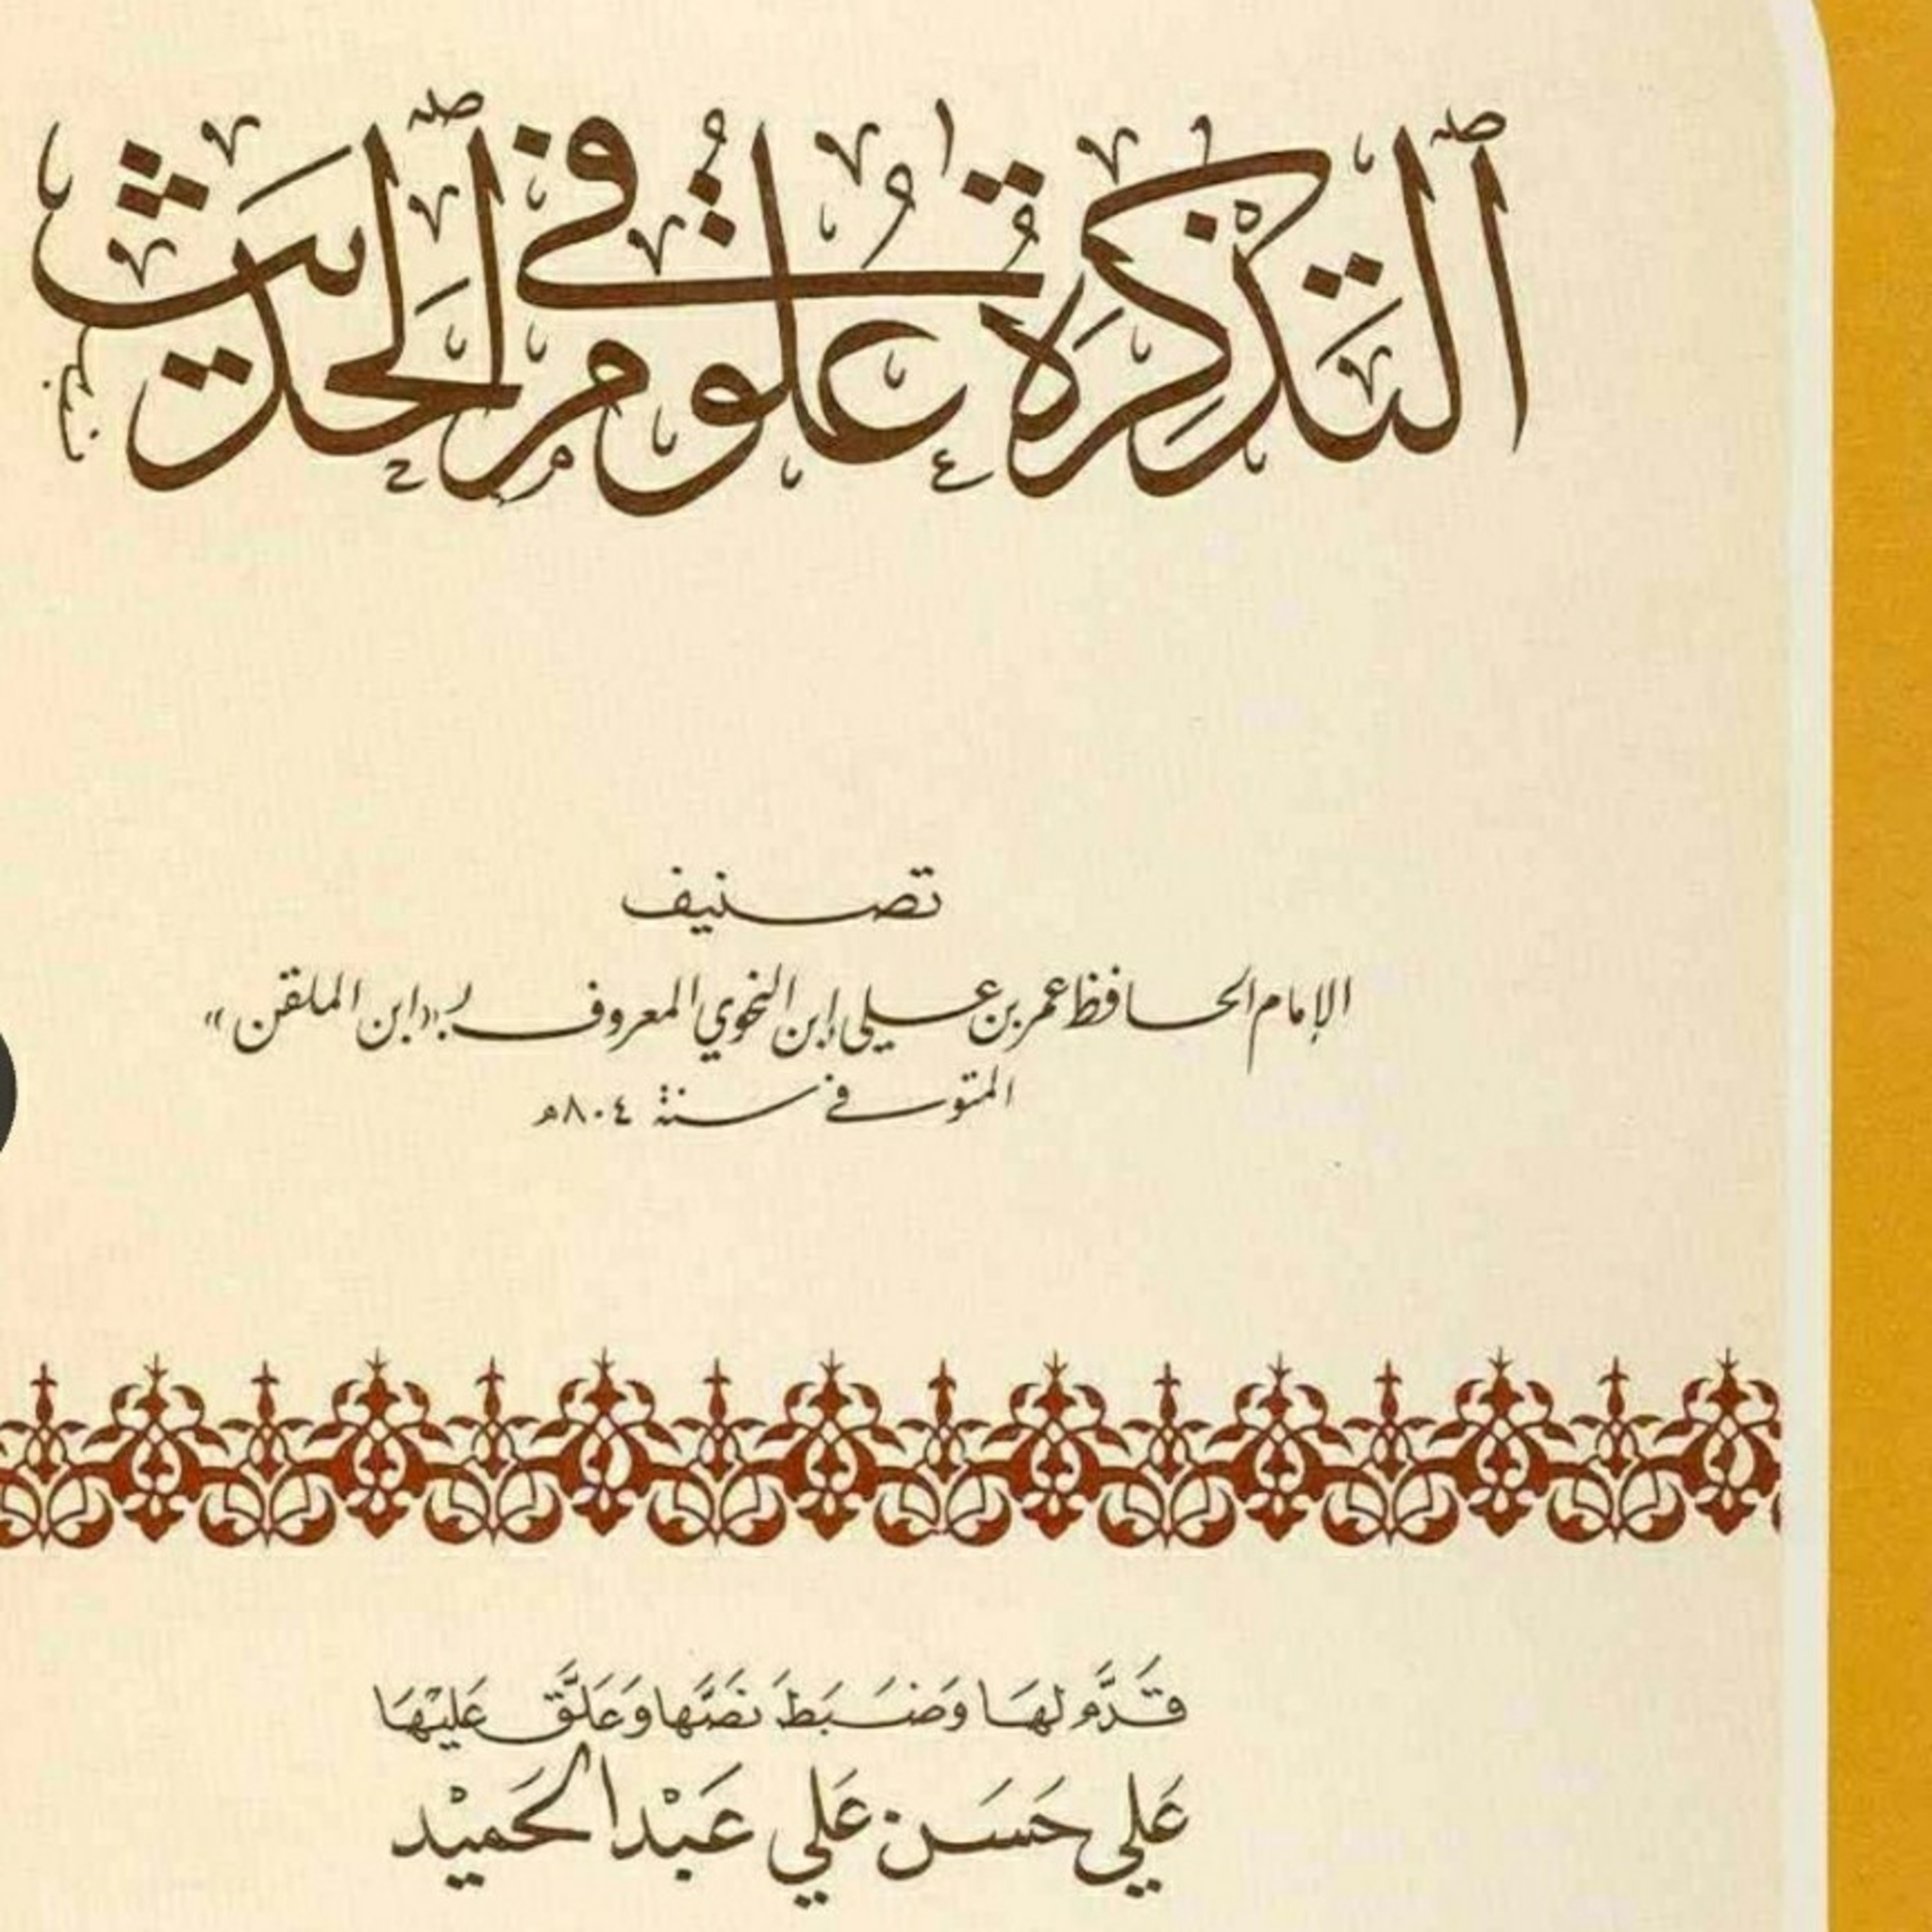 التَّذْكِرَةُ في عُلُومِ الحَدِيثِ
تصنيف
الإمام الحافظ عمر بن علي ابن النحوي المعروف بـ «ابن الملقن»
المتوفى سنة ٨٠٤ه
قَدَّم لهَا وَضَبَطَ نَصَّها وَعَلَّق عَليْهَا
عَلي حَسَن عَلي عَبْد الحَميْد